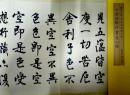 見五蘊皆空
度一切苦厄
舍利子色不
異空空不異
色色即是空
空即是色受
想行識亦復